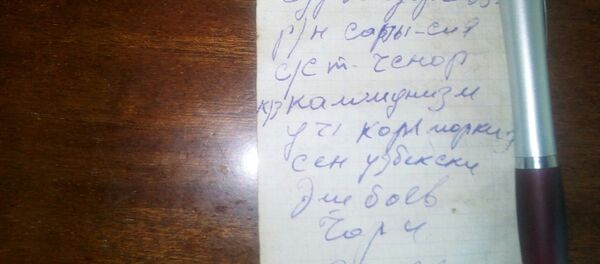 р/н сары-сия
с/с т-ченор
к/з Каммунизм
уч Карл маркиз
сен узбекски
Эшбоев
Чори